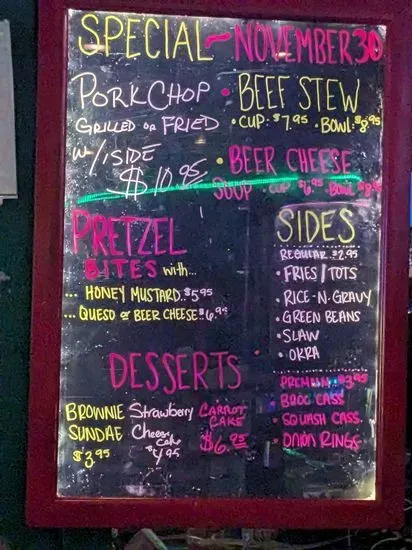 SPECIAL ~ NOVEMBER 30
PORK CHOP
GRILLED OR FRIED
W/ 1 SIDE
$10.95
• BEEF STEW
• CUP: $7.95 • BOWL: $8.95
• BEER CHEESE
SOUP • CUP $6.95 • BOWL $8.95
PRETZEL
BITES with...
... HONEY MUSTARD.. $5.95
... QUESO or BEER CHEESE $6.99
SIDES
REGULAR $2.95
• FRIES / TOTS
• RICE-N-GRAVY
• GREEN BEANS
• SLAW
• OKRA
PREMIUM $3.95
• BROC CASS
• SQUASH CASS.
• ONION RINGS
DESSERTS
BROWNIE
SUNDAE
$3.95
Strawberry
Cheese
cake
$4.95
CARROT
CAKE
$6.95